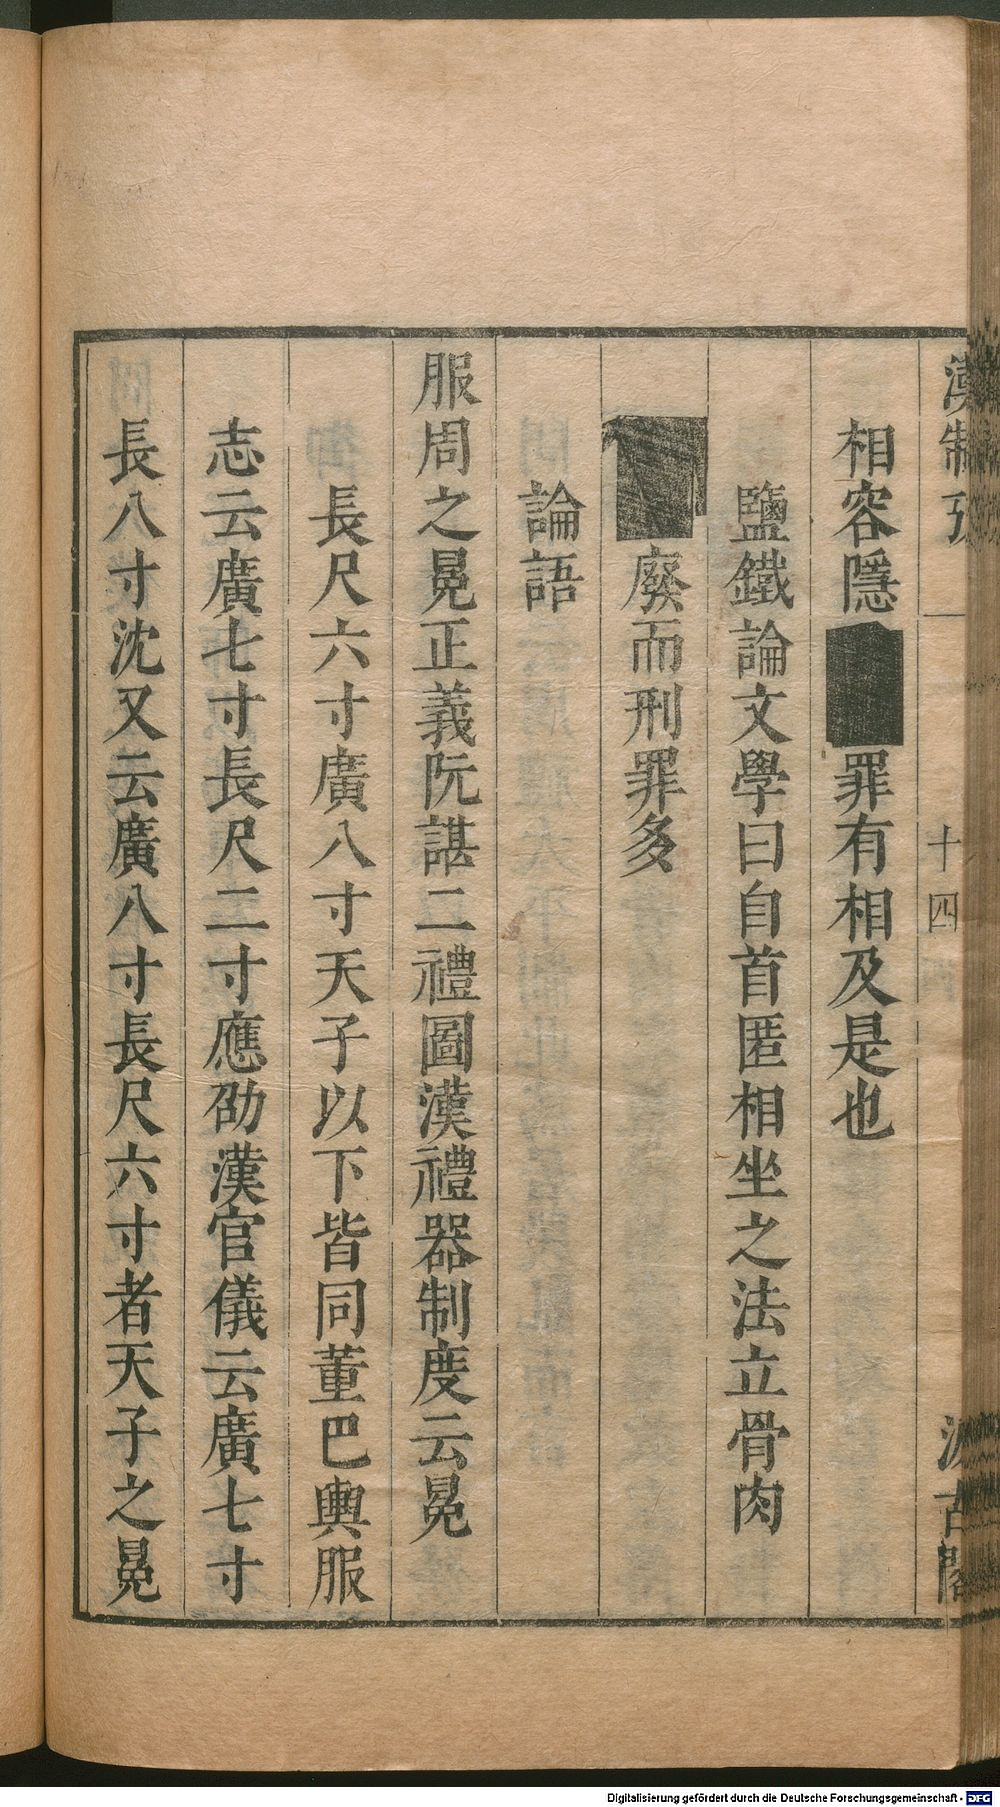 漢制攷
十四
汲古閣
相容隱■■罪有相及是也
鹽鐵論文學曰自首匿相坐之法立骨肉
■■廢而刑罪多
論語
服周之冕正義阮諶三禮圖漢禮器制度云冕
長尺六寸廣八寸天子以下皆同董巴輿服
志云廣七寸長尺二寸應劭漢官儀云廣七寸
長八寸沈又云廣八寸長尺六寸者天子之冕
Digitalisierung gefördert durch die Deutsche Forschungsgemeinschaft - DFG